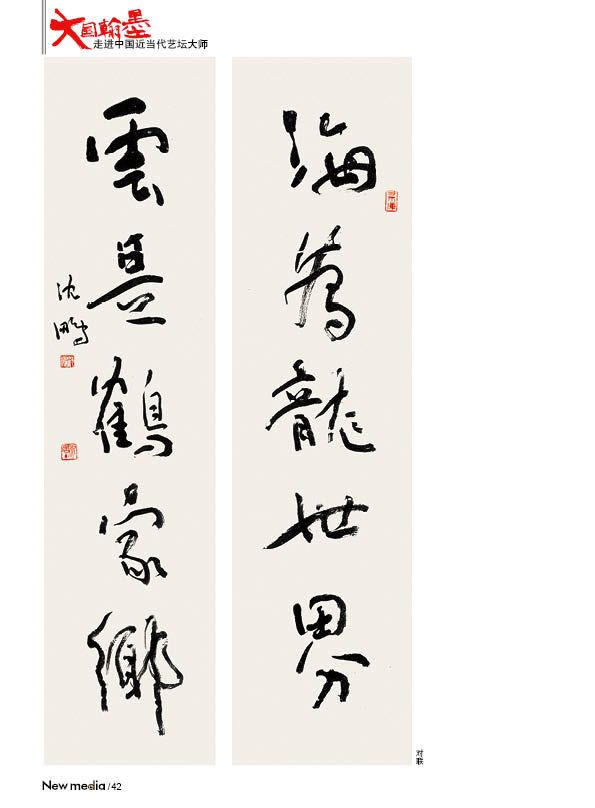 大国翰墨
走进中国近当代艺坛大师
海為龍世界
雲是鶴家鄉
沈鵬
对联
New media / 42